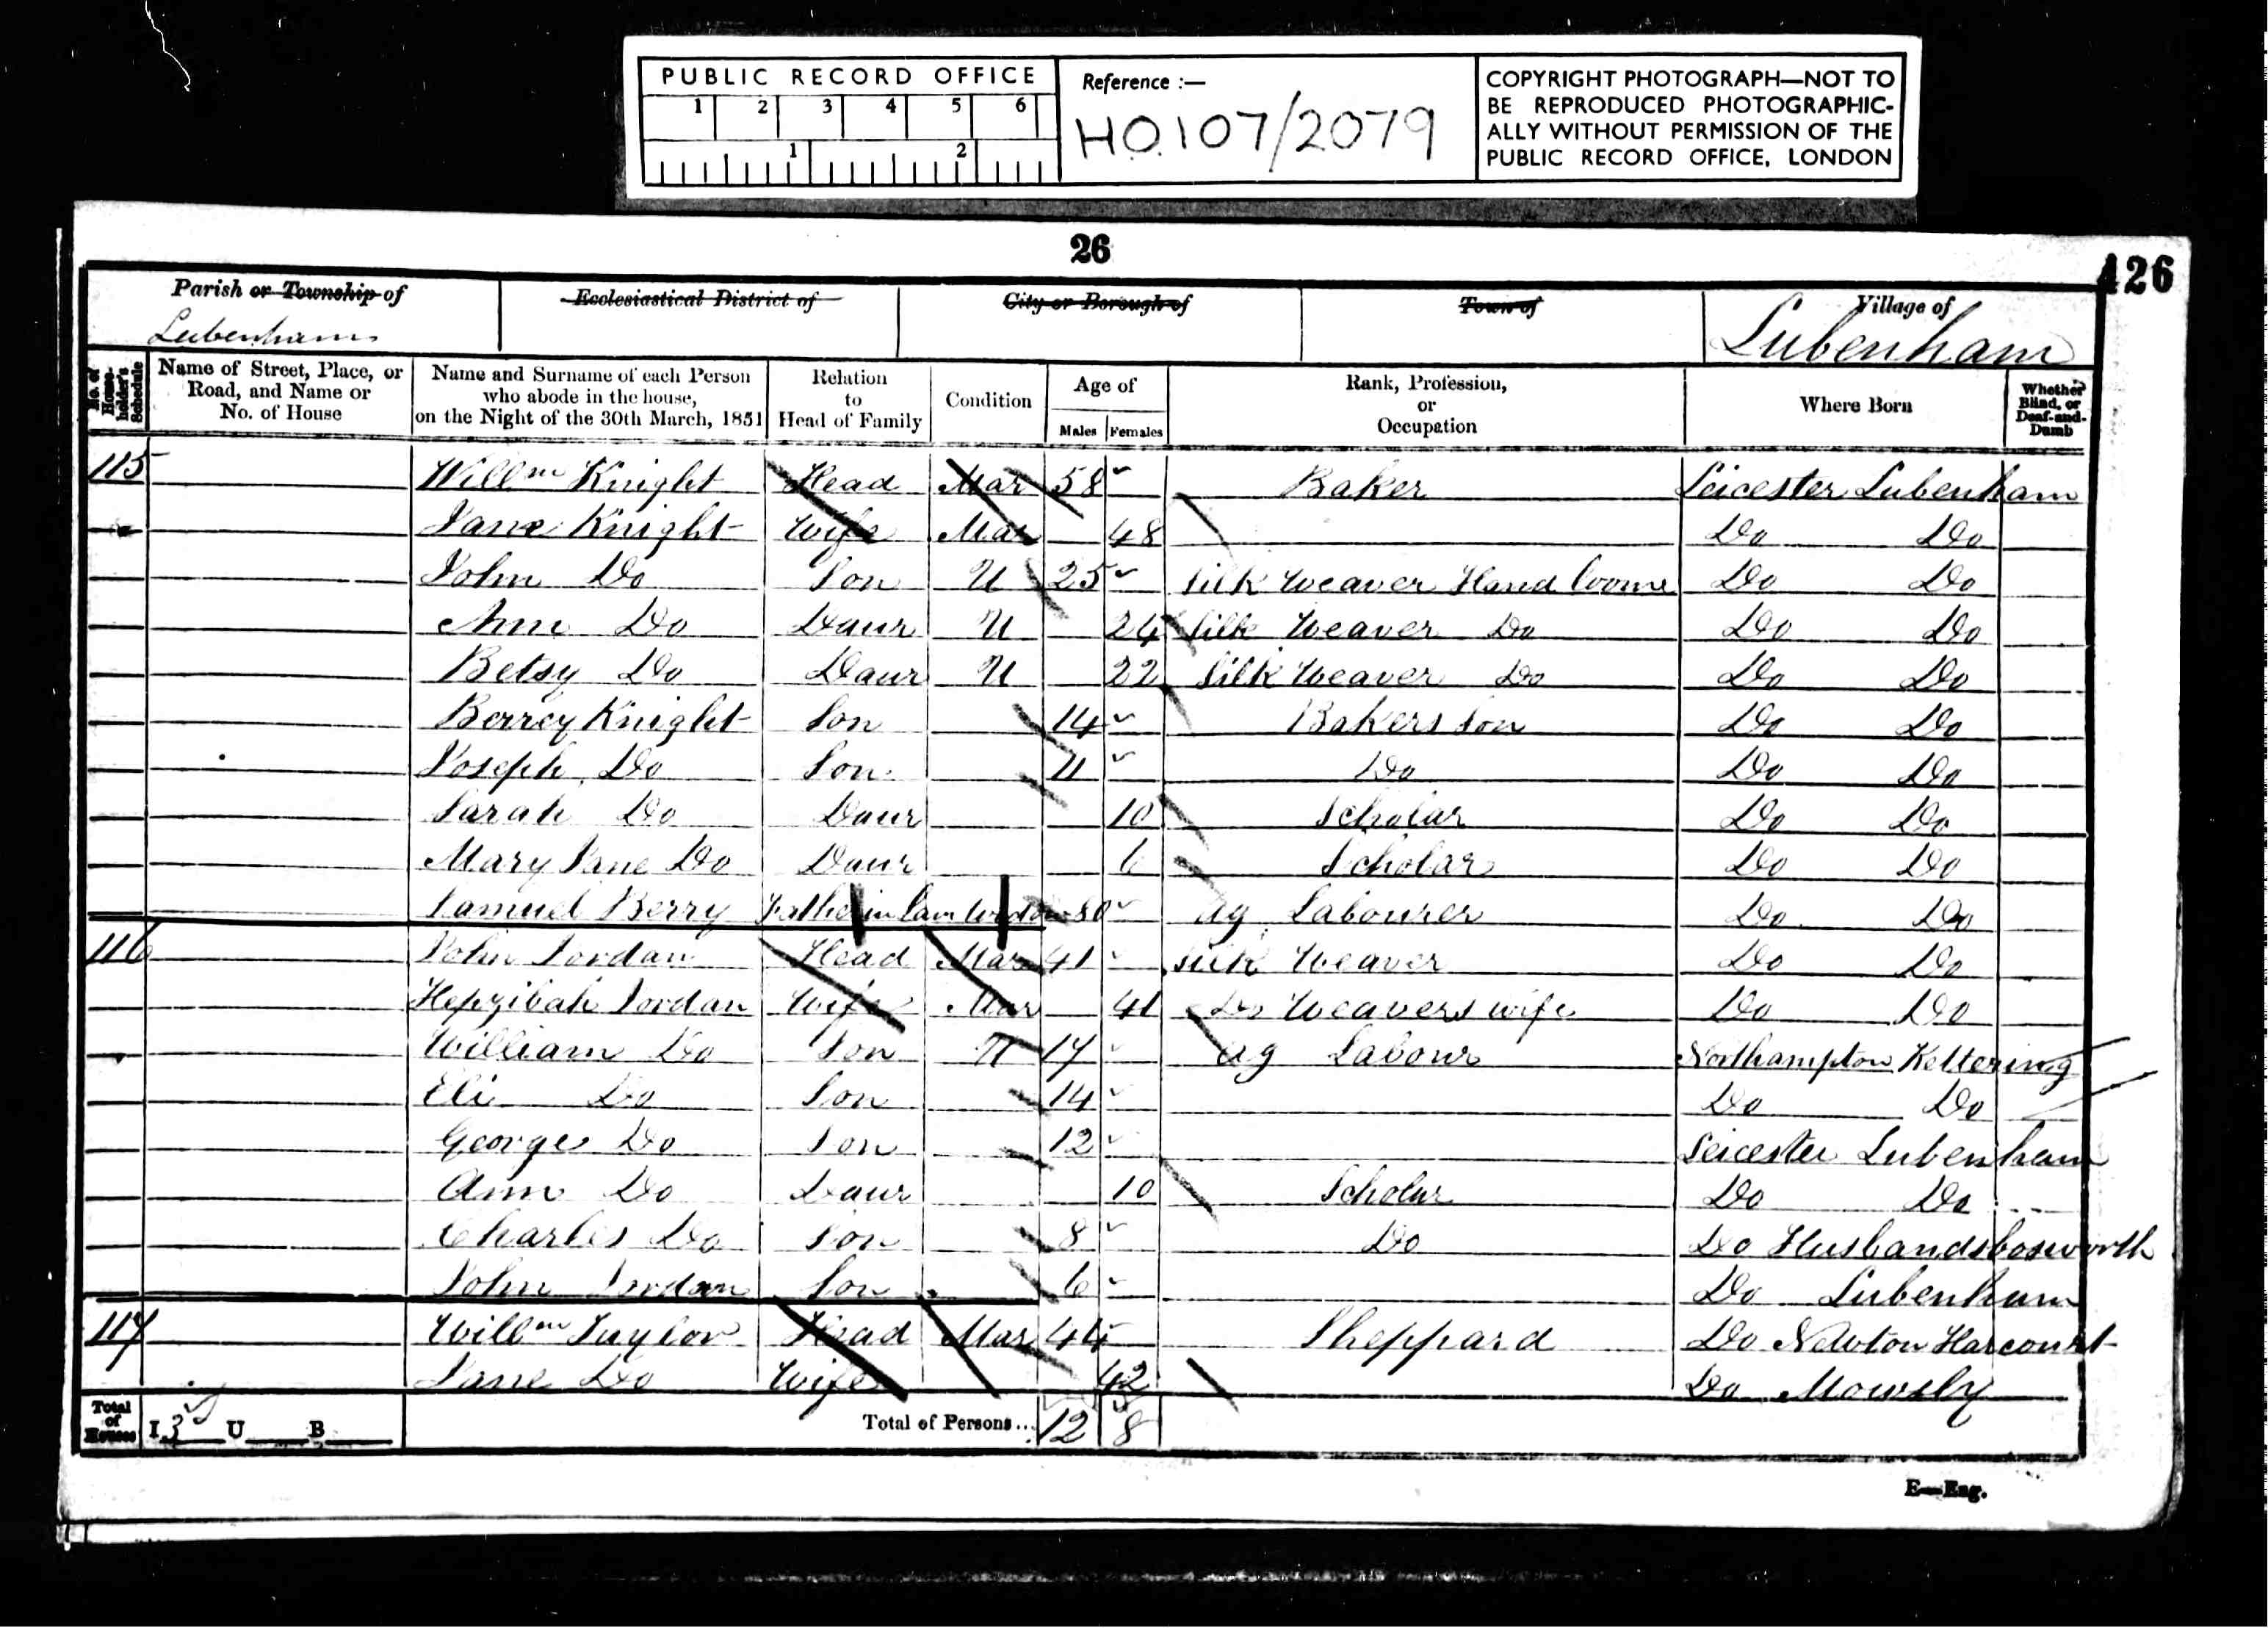 PUBLIC RECORD OFFICE
1 2 3 4 5 6
1 2
Reference :—
HO.107/2079
COPYRIGHT PHOTOGRAPH—NOT TO
BE REPRODUCED PHOTOGRAPHIC-
ALLY WITHOUT PERMISSION OF THE
PUBLIC RECORD OFFICE, LONDON
26
426
Parish or Township of Ecclesiastical District of City or Borough of Town of Village of
Lubenham Lubenham
No. of House-holder's Schedule
Name of Street, Place, or Road, and Name or No. of House
Name and Surname of each Person who abode in the house, on the Night of the 30th March, 1851
Relation to Head of Family
Condition
Age of
Males Females
Rank, Profession, or Occupation
Where Born
Whether Blind, or Deaf-and-Dumb
115 Willm Knight Head Mar 58 Baker Leicester Lubenham
Jane Knight Wife Mar 48 Do Do
John Do Son U 25 Silk Weaver Hand loome Do Do
Ann Do Daur U 24 Silk Weaver Do Do Do
Betsy Do Daur U 22 Silk Weaver Do Do Do
Berrey Knight Son 14 Bakers Son Do Do
Joseph Do Son 11 Do Do Do
Sarah Do Daur 10 Scholar Do Do
Mary Jane Do Daur 6 Scholar Do Do
Samuel Berry Father in law 80 Ag Labourer Do Do
116 John Jordan Head Mar 41 Silk Weaver Do Do
Hepzibah Jordan Wife Mar 41 Do Weavers wife Do Do
William Do Son U 17 Ag Labour Northampton Kettering
Eli Do Son 14 Do Do
George Do Son 12 Leicester Lubenham
Ann Do Daur 10 Scholar Do Do
Charles Do Son 8 Do Do Husbandsbosworth
John Jordan Son 6 Do Lubenham
117 Willm Taylor Head Mar 44 Sheppard Do Newton Harcourt
Jane Do Wife 42 Do Mowsly
Total of Houses I 3 U B Total of Persons... 12 8
E—Eng.